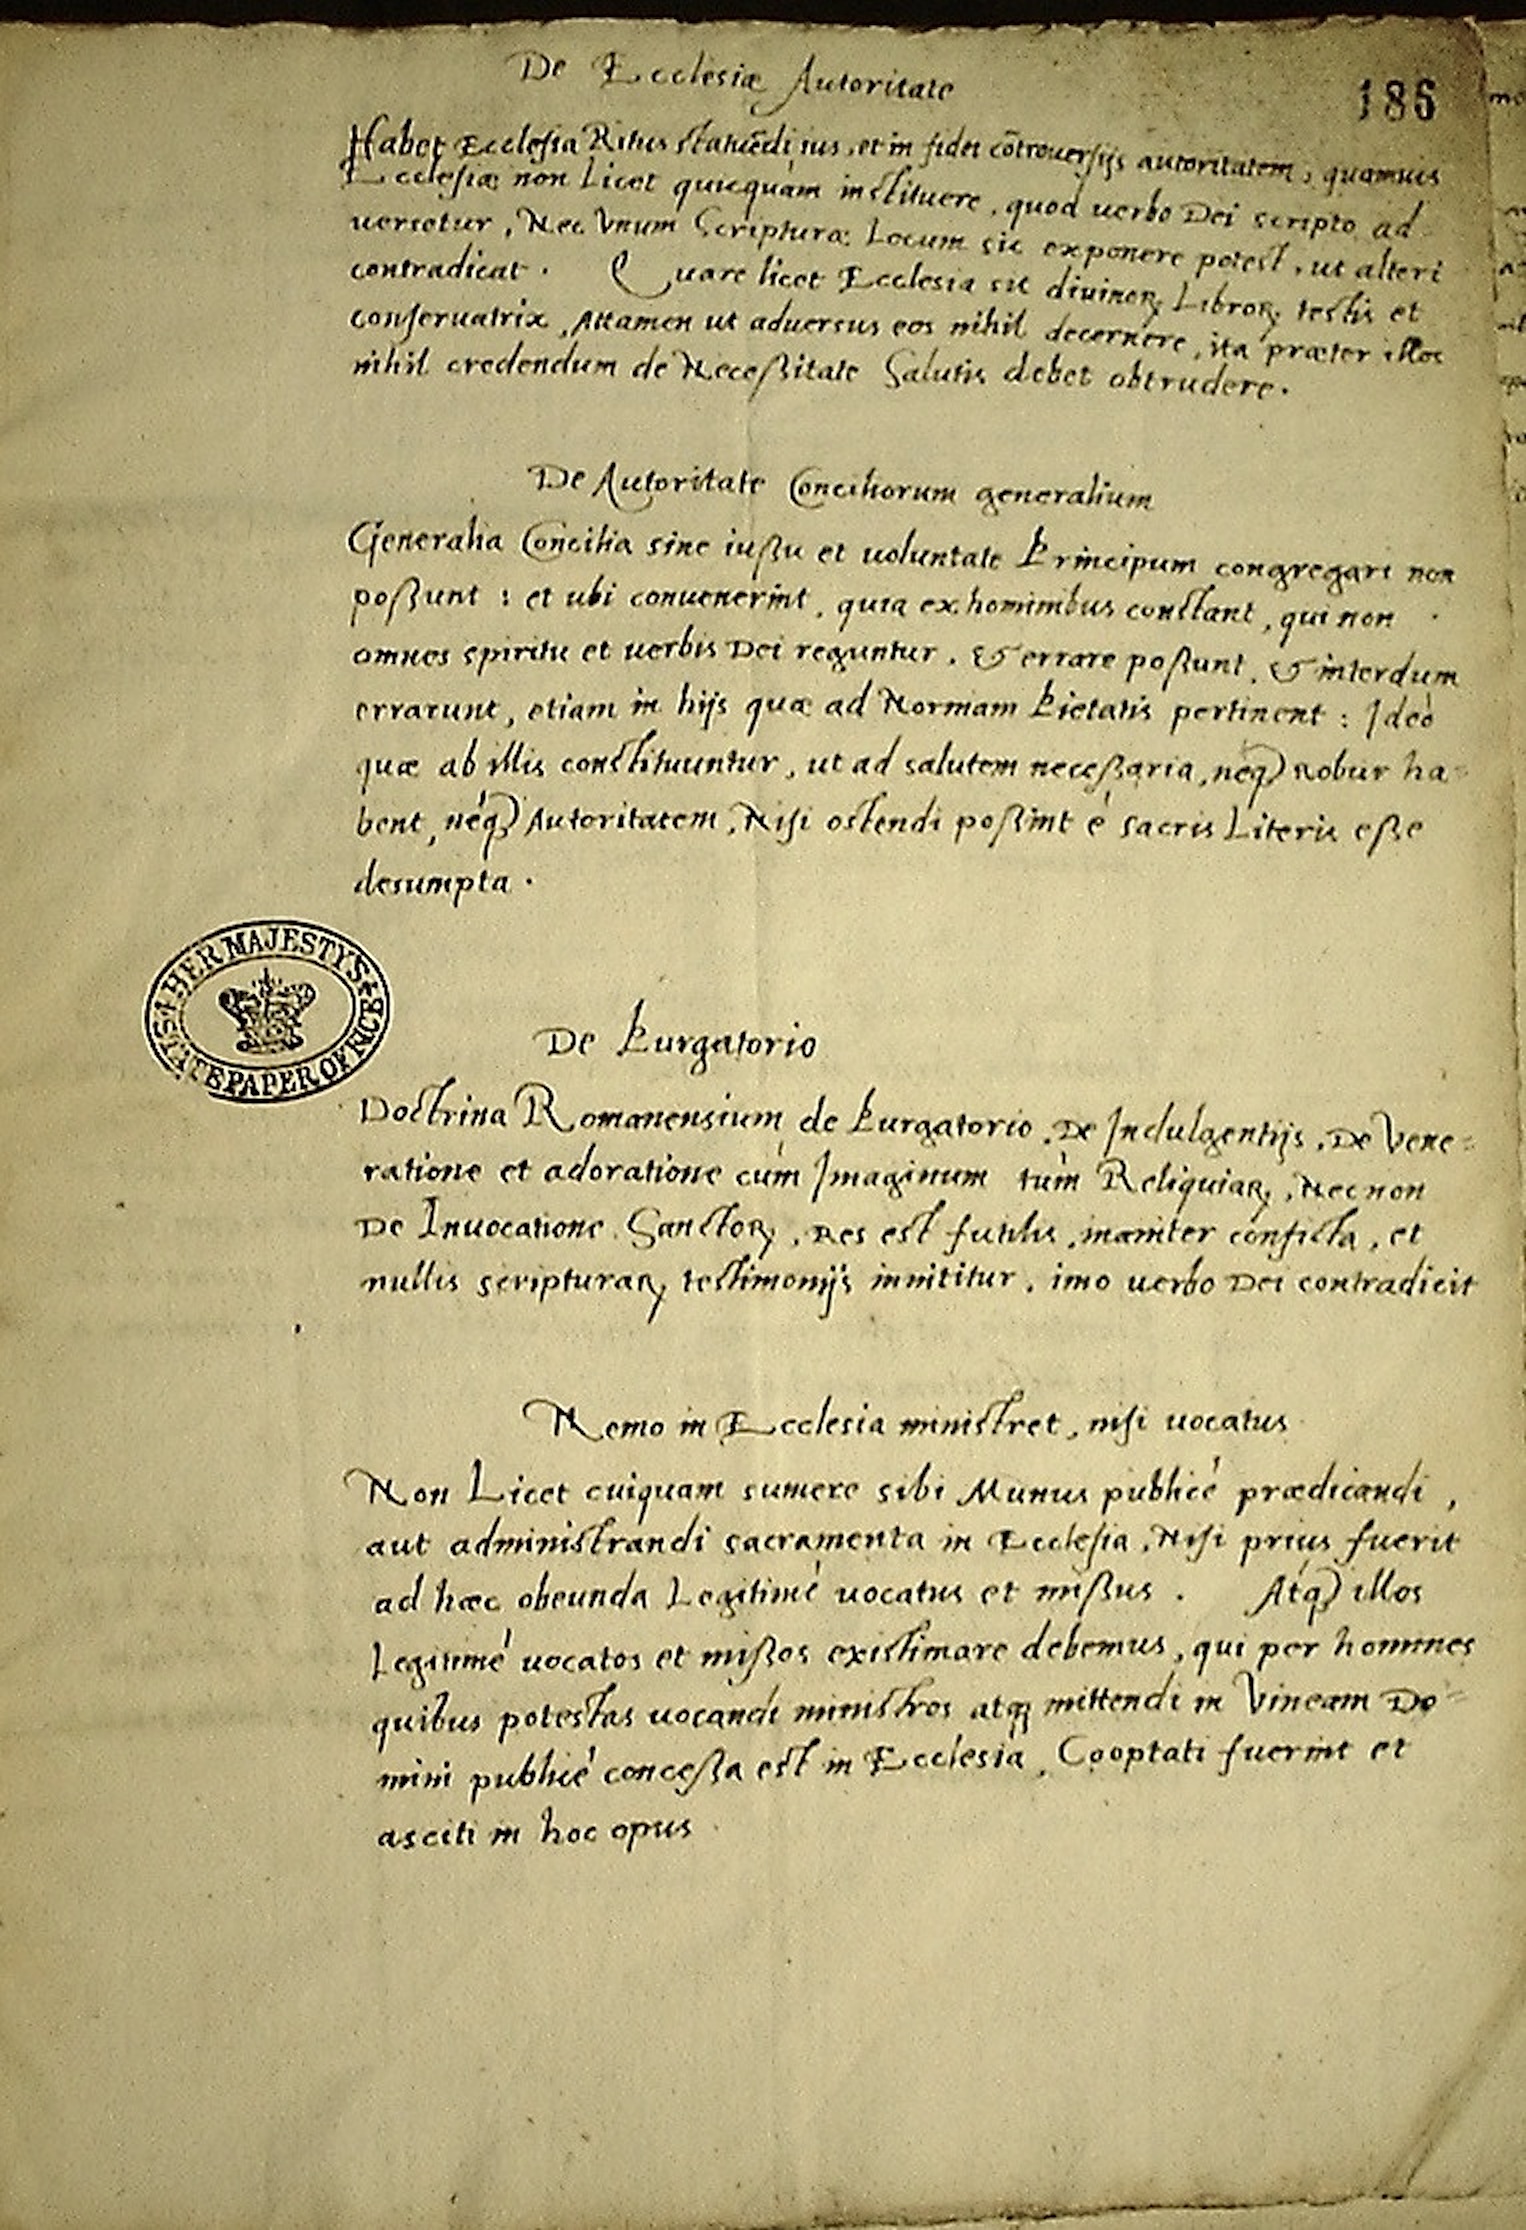 De Ecclesiæ Autoritate
186
Habet Ecclesia Ritus statuẽdi ius, et in fidei cõtrouersijs autoritatem, quamuis
Ecclesiæ non Licet quicquàm instituere, quod uerbo Dei scripto ad
uersetur, Nec Vnum Scripturæ Locum sic exponere potest, ut alteri
contradicat. Quare licet Ecclesia sit diuinoꝝ Libroꝝ testis et
conseruatrix, Attamen ut aduersus eos nihil decernere, ita præter illos
nihil credendum de Neceßitate Salutis debet obtrudere.
De Autoritate Conciliorum generalium
Generalia Concilia sine iußu et uoluntate Principum congregari non
poßunt: et ubi conuenerint, quia ex hominibus constant, qui non
omnes spiritu et uerbis Dei reguntur, & errare poßunt, & interdum
errarunt, etiam in hijs quæ ad Normam Pietatis pertinent: Ideò
quæ ab illis constituuntur, ut ad salutem neceßaria, neqꝫ Robur ha=
bent, néqꝫ Autoritatem, Nisi ostendi poßint è sacris Literis eße
desumpta.
HER MAJESTYS
STATE PAPER OFFICE
De Purgatorio
Doctrina Romanensium de Purgatorio, De Indulgentijs, De Vene=
ratione et adoratione cùm Imaginum tùm Reliquiaꝝ, Nec non
De Inuocatione Sanctoꝝ, Res est futilis, inaniter conficta, et
nullis scripturaꝝ testimonijs innititur, imo uerbo Dei contradicit
Nemo in Ecclesia ministret, nisi uocatus
Non Licet cuiquam sumere sibi Munus publicè prædicandi,
aut administrandi sacramenta in Ecclesia, Nisi prius fuerit
ad hæc obeunda Legitimè uocatus et mißus. Atqꝫ illos
Legitimè uocatos et mißos existimare debemus, qui per homines
quibus potestas uocandi ministros atqꝫ mittendi in Vineam Do=
mini publicè conceßa est in Ecclesia, Cooptati fuerint et
asciti in hoc opus